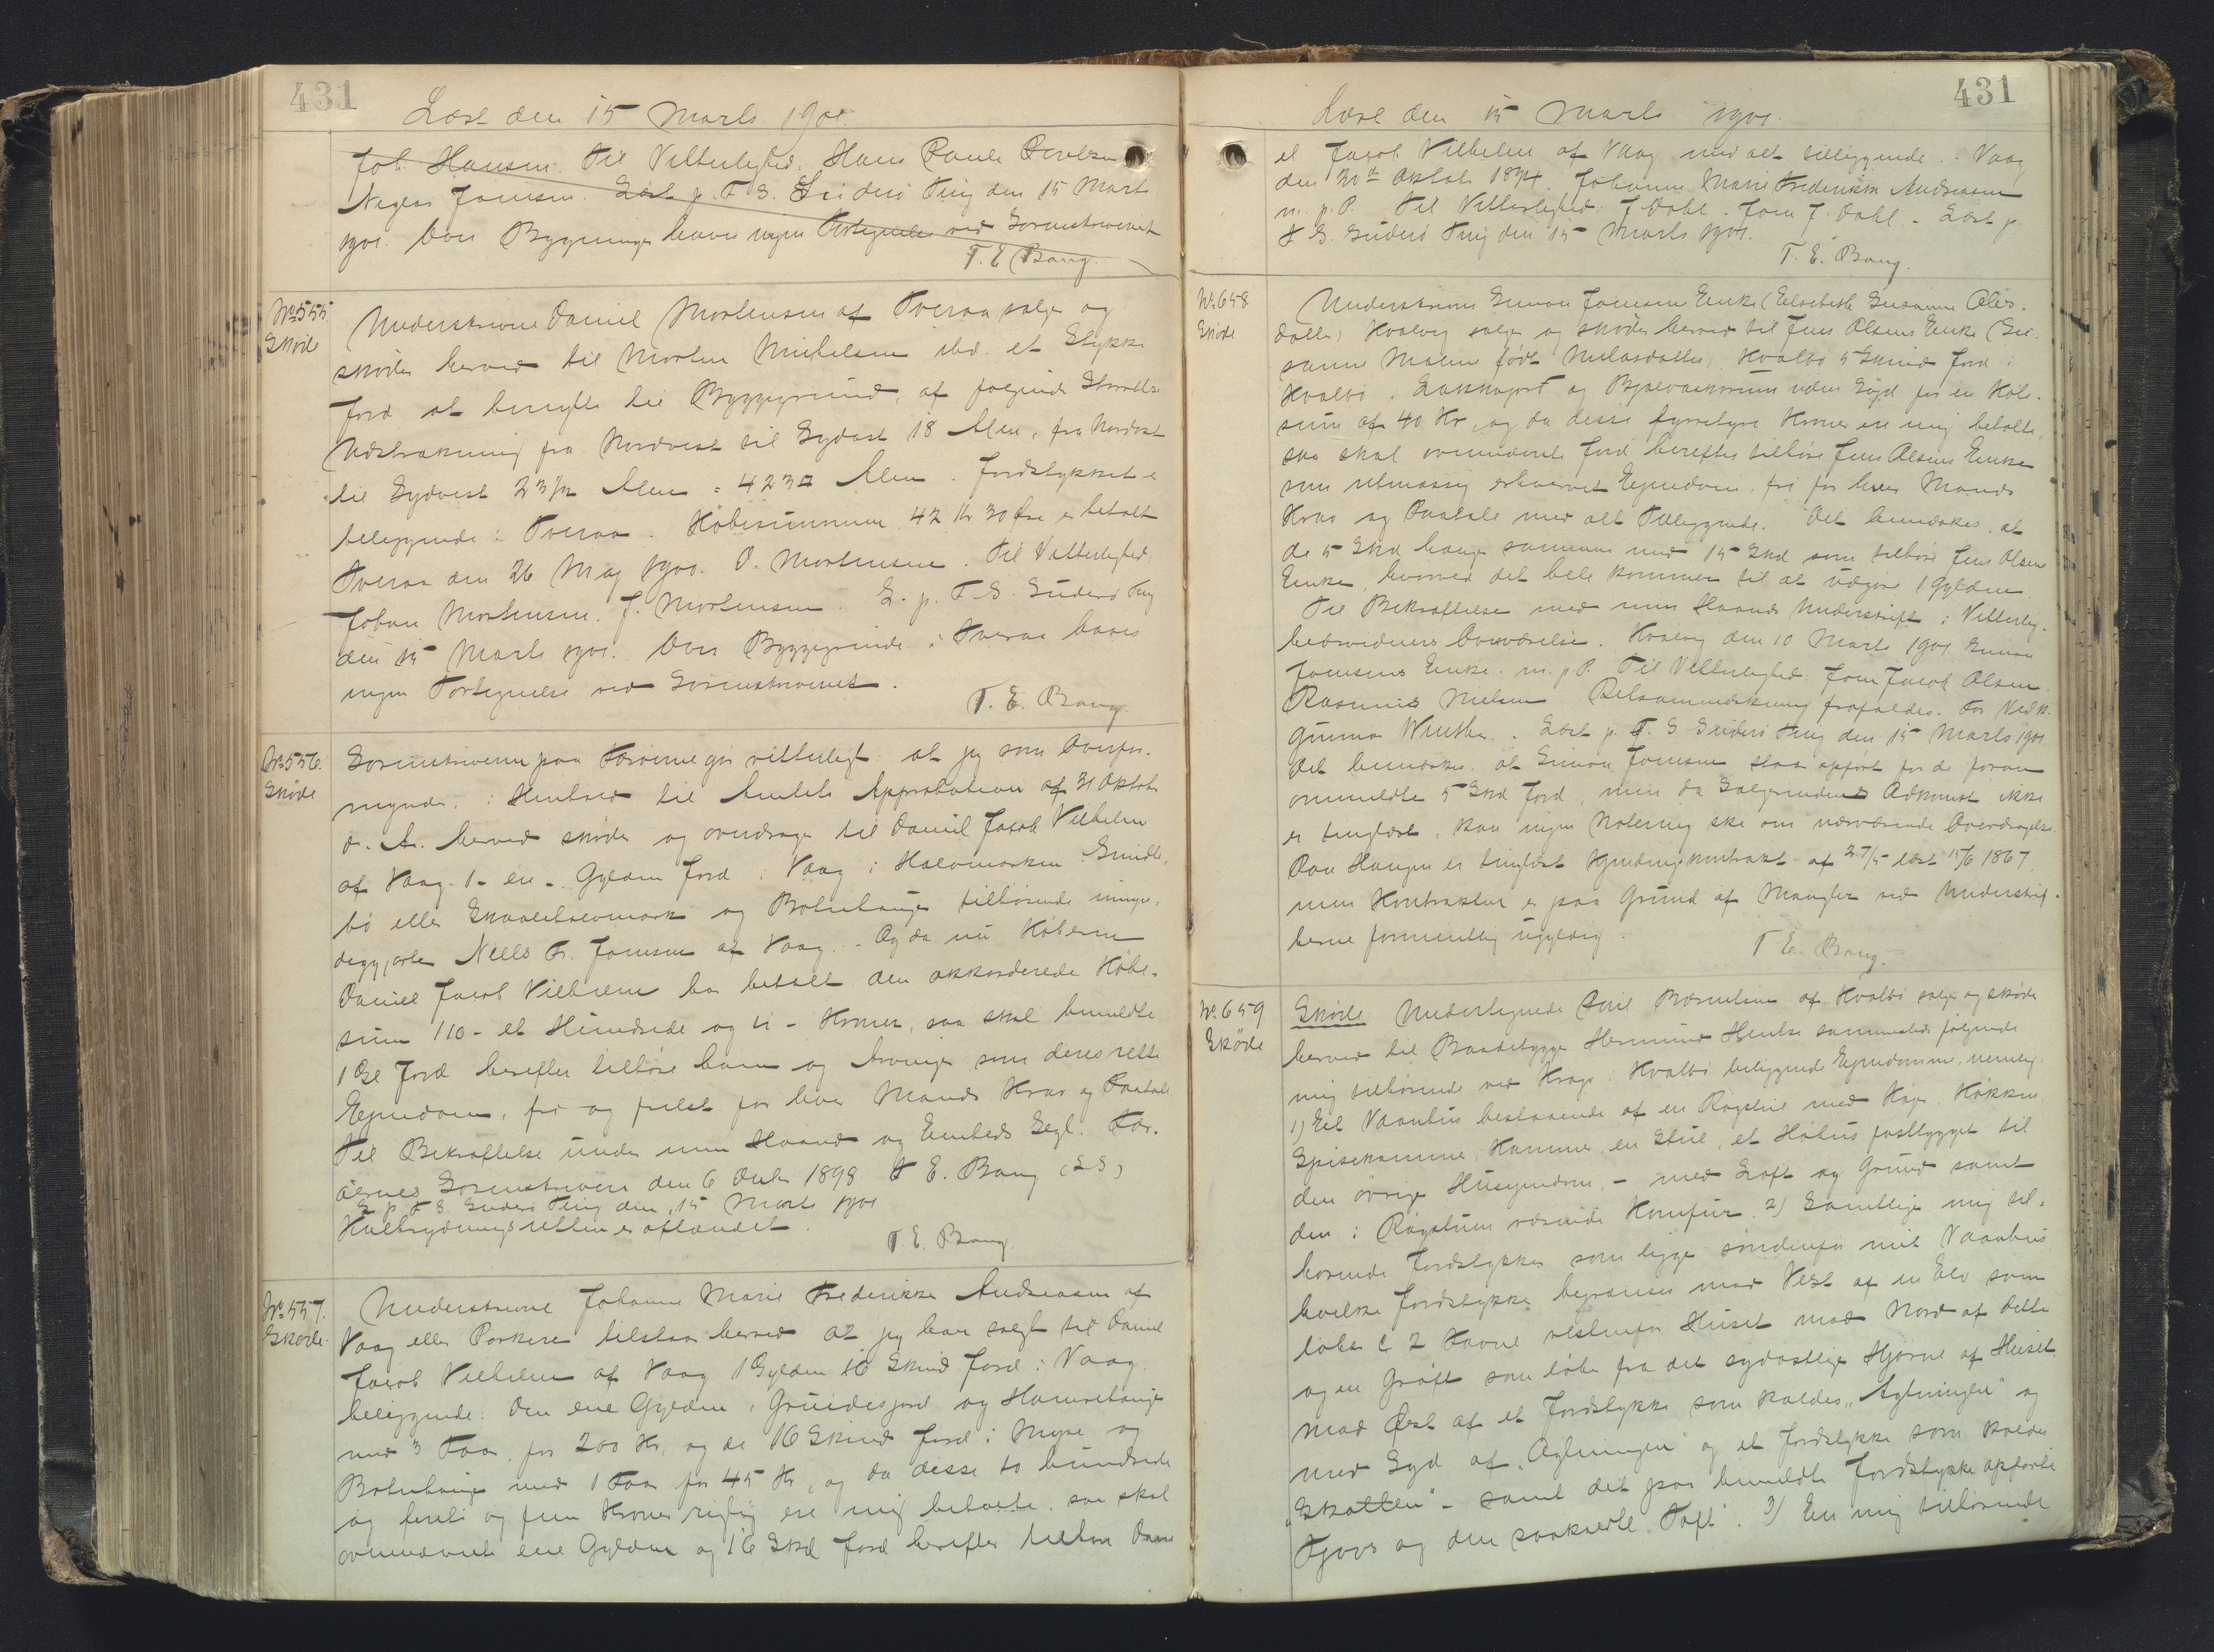 431
Læst den 15 Marts 1901.
Joh. Hansen. Til Vitterlighed. Hans Paule Poulsen
Joensen. Læst p. F. S. Suderø Ting den 15 Marts
1901. Over Bygninger haves ingen Fortegnelse ved Sorenskriveriet
T. E. Bang.
No 555.
Skøde
Underskrevne Daniel Mortensen af Tveraa sælger og
skøder herved til Morten Mikkelsen ibd. et Stykke
Jord at benytte til Byggegrund, af følgende Størrelse
Udstrækning fra Nordvest til Sydost 18 Alen, fra Nordost
til Sydvest 23 1/2 Alen = 423 □ Alen. Jordstykket er
beliggende i Tveraa. Købesummen 42 Kr 30 Øre er betalt
Tveraa den 26 Maj 1900. D. Mortensen. Til Vitterlighed
Johan Mortensen. J. Mortensen. L. p. F. S. Suderø Ting
den 15 Marts 1901. Over Byggegrunde i Tveraa haves
ingen Fortegnelse ved Sorenskriveriet.
T. E. Bang.
No 556.
Skøde
Sorenskriveren paa Færøerne gør vitterligt: at jeg som Overfor-
mynder i Henhold til Amtets Approbation af 31 Oktober
d. A. herved skøder og overdrager til Daniel Jacob Vilhelm
af Vaag 1 - en - Gylden Jord i Vaag i Halvmarken
bø eller Skaalehalvmark og Botnhauge tilhørende umyn-
diggjorte Niels Fr. Joensen af Vaag. - Og da nu Køberen
Daniel Jacob Vilhelm har betalt den akkorderede Købe-
sum 110 - et Hundrede og ti - Kroner, saa skal bemeldte
1 Gl Jord herefter tilhøre ham og Arvinger som deres rette
Ejendom, fri og frelst for hver Mands Krav og Paatale
Til Bekræftelse under min Haand og Embeds Segl. Fær-
øernes Sorenskriveri den 6 Decbr 1898 T. E. Bang (L S)
L. p. F. S. Suderø Ting den 15 Marts 1901
Hvalbrydningsretten er afhændet.
T. E. Bang.
No 557.
Skøde.
Underskrevne Johanne Marie Frederikke Andreasen af
Vaag eller Porkere tilstaar herved at jeg har solgt til Daniel
Jacob Vilhelm af Vaag 1 Gylden 16 Skind Jord i Vaag
beliggende: Den ene Gylden i Gruidesjord og Hamrehauge
med 3 Faar, for 200 Kr, og de 16 Skind Jord i Myre og
Botnhauge med 1 Faar for 45 Kr, og da disse to hundrede
og firti og fem Kroner rigtig ere mig betalte, saa skal
ovennævnte ene Gylden og 16 Skd Jord herefter tilhøre Daniel
431
Læst den 15 Marts 1901.
el Jacob Vilhelm af Vaag med alt tilliggende. - Vaag
den 30te Oktob 1894. Johanne Marie Frederikke Andreasen
m. p. P. Til Vitterlighed: J. Dahl. Joen J. Dahl. - Læst p.
F S. Suderø Ting den 15 Marts 1901.
T. E. Bang.
No 658
Skøde
Underskrevne Simon Joensens Enke (Elsebeth Susanne Oles-
datter) Hvalvig sælger og skøder herved til Jens Olsens Enke (Su-
sanne Malene født Niclasdatter) Hvalbø 5 Skind Jord i
Hvalbø i Lakkagjord og uden Lagd for en Købe-
sum af 40 Kr, og da disse fyrretyve Kroner ere mig betalte,
saa skal ovennævnte Jord herefter tilhøre Jens Olsens Enke
som retmæssig erhvervet Ejendom, fri for hver Mands
Krav og Paatale med alt Tilliggende. Det bemærkes, at
de 5 Skd hænger sammen med 15 Skd som tilhøre Jens Olsens
Enke, hvorved det hele kommer til at udgøre 1 Gylden.
Til Bekræftelse med min Haands Underskrift i Vitterlig-
hedsvidners Overværelse. Hvalvig den 10 Marts 1901. Simon
Joensens Enke. m. p P. Til Vitterlighed: Joen Jacob Olsen
Rasmus Nielsen. Retsanmærkning frafaldes. For Vedk.
Gunnar Winther. - Læst p. F. S Suderø Ting den 15 Marts 1901
Det bemærkes, at Simon Joensen staar opført for de foran
ommeldte 5 Skd Jord, men da Sælgerindens Adkomst ikke
er tinglæst, kan ingen Notering ske om nærværende Overdragelse.
Paa Haugen er tinglæst Hyndingskontrakt af 27/5 læst 15/6 1867,
men Kontrakten er paa Grund af Mangler ved Underskrif-
terne formentlig ugyldig.
T E. Bang.
No 659
Skøde
Skøde Undertegnede af Hvalbø sælger og skøder
herved til Baadebygger Hermund Hentze sammesteds følgende
mig tilhørende ved Krage i Hvalbø beliggende Ejendomme, nemlig:
1) Et Vaanhus bestaaende af en Røgstue med Køje, Køkken
Spisekammer, Kammer, en Stue, et Hølus fastbygget til
den øvrige Husejendom, - med Loft og Grund samt
den i Røgstuen værende Komfur. 2) Samtlige mig til-
hørende Jordstykker som ligge søndenfor mit Vaanhus
hvilke Jordstykker begrænses mod Vest af en Elv som
løber c 2 Favne vestenfor Huset mod Nord af dette
og en Grøft som løber fra det sydøstlige Hjørne af Huset
mod Øst af et Jordstykke som kaldes "Agtningen" og
mod Syd af "Agtningen" og et Jordstykke som kaldes
"Skatten" - samt det paa bemeldte Jordstykke opførte
Hjover og den saakaldte "Toft". 3) En mig tilhørende